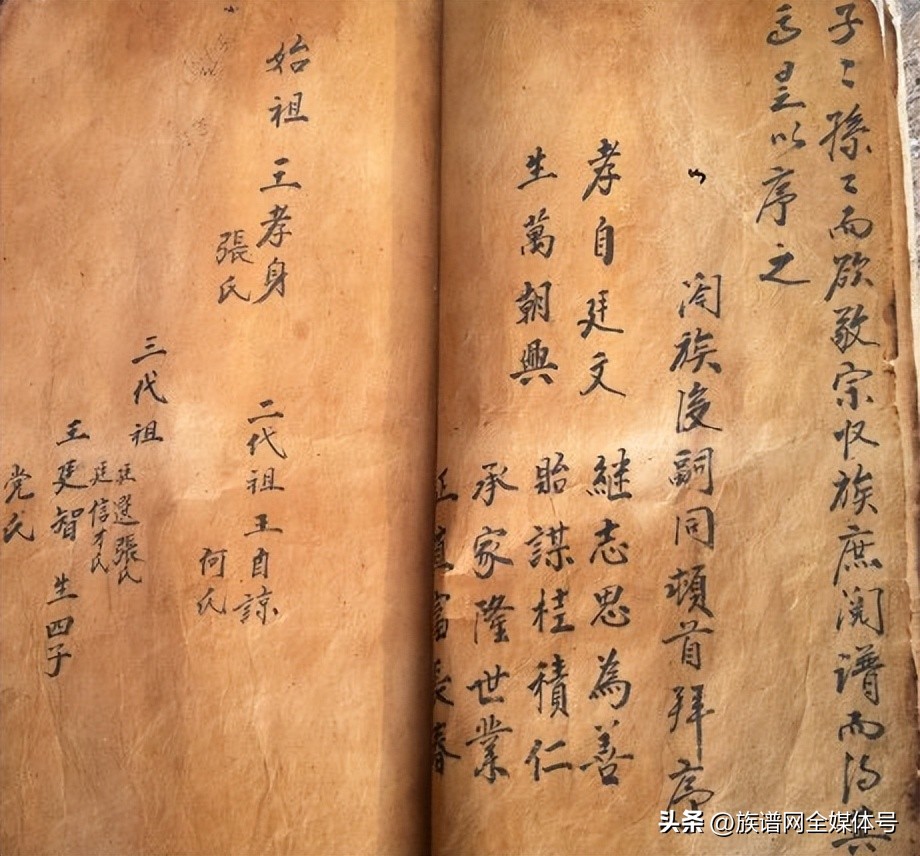 子〻孫〻而欲敬宗收族庶閱譜而得其
焉是以序之
闔族後嗣同頓首拜序
孝自廷文
生萬朝興
継志思為善
貽謀桂積仁
承家隆世業
富長春
始祖 王孝身
張氏
二代祖王自諒
何氏
三代祖
廷選張氏
廷信才氏
王廷智 生四子
党氏
头条 @族谱网全媒体号